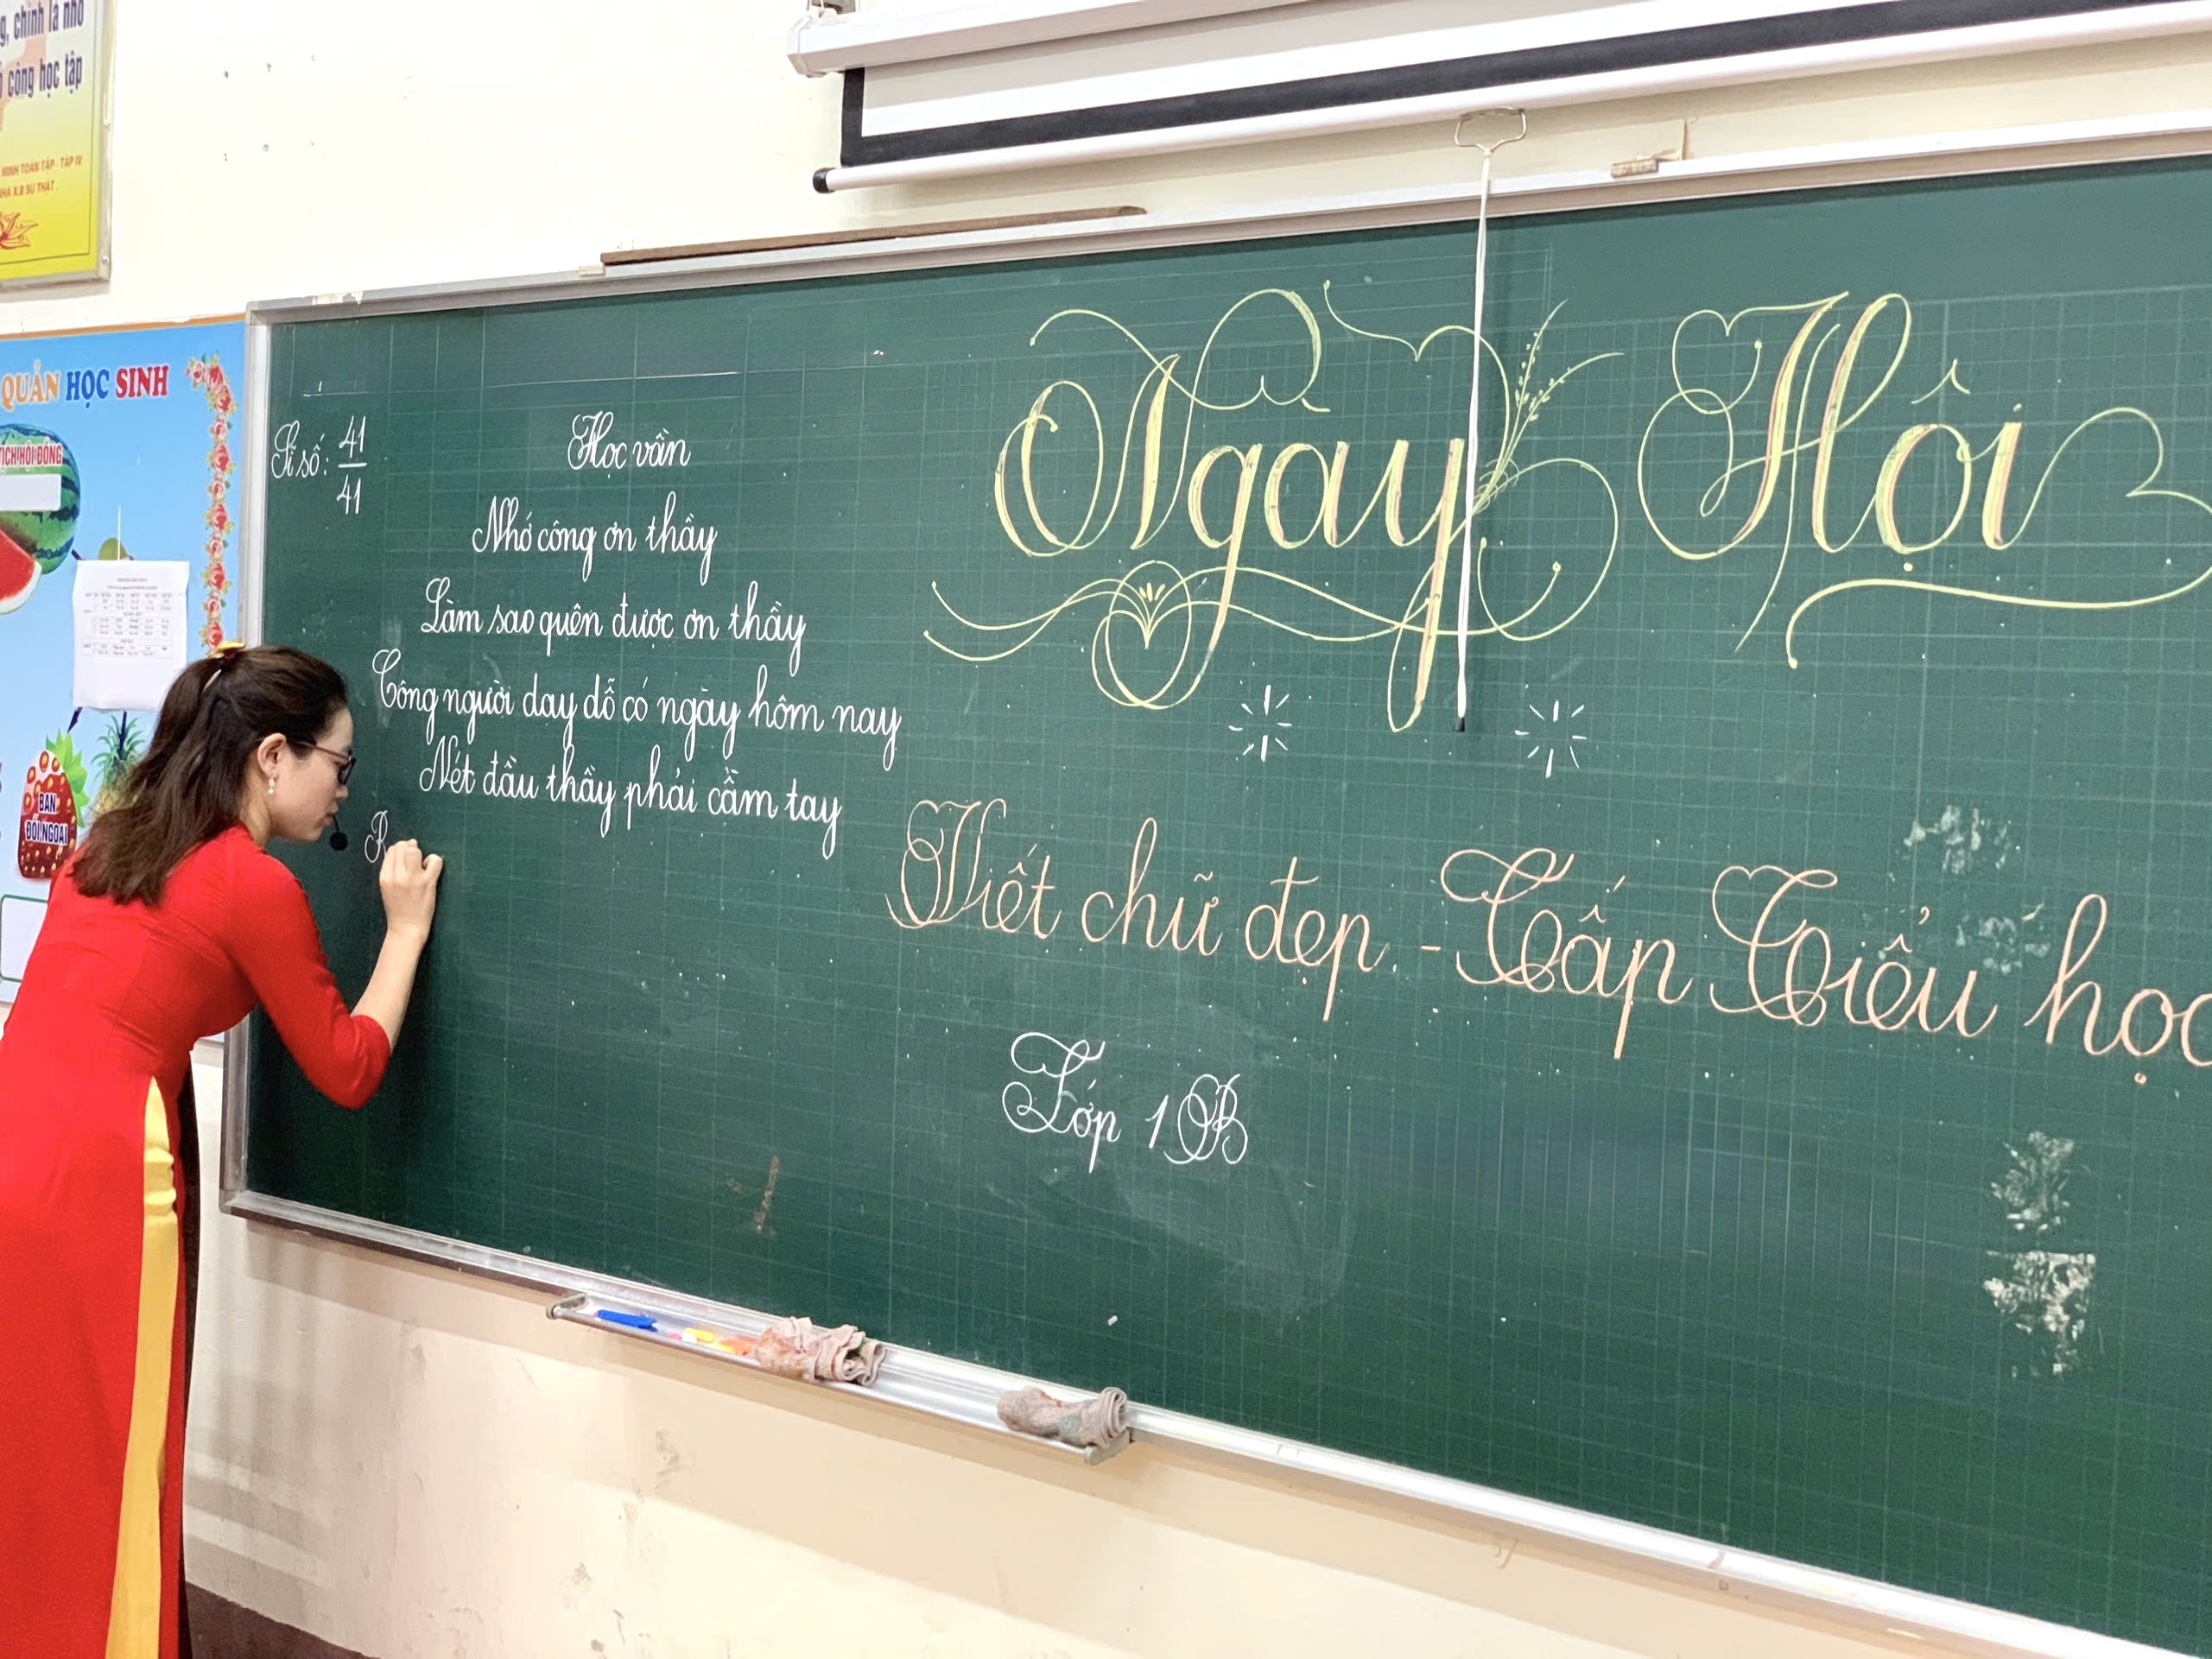 g, chính là nhờ
công học tập
MINH TOÀN TẬP - TẬP IV
NHÀ X.B SỰ THẬT
QUẢN HỌC SINH
TỊCH HỘI ĐỒNG
BAN
ĐỐI NGOẠI
Sĩ số: 41
41
Học vần
Nhớ công ơn thầy
Làm sao quên được ơn thầy
Công người day dỗ có ngày hôm nay
Nét đầu thầy phải cầm tay
R
Ngày Hội
Viết chữ đẹp - Cấp Tiểu học
Lớp 1B